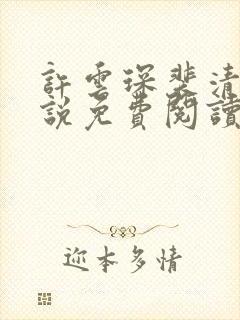 許雲琛裴清
說免費閱讀
迩本多情